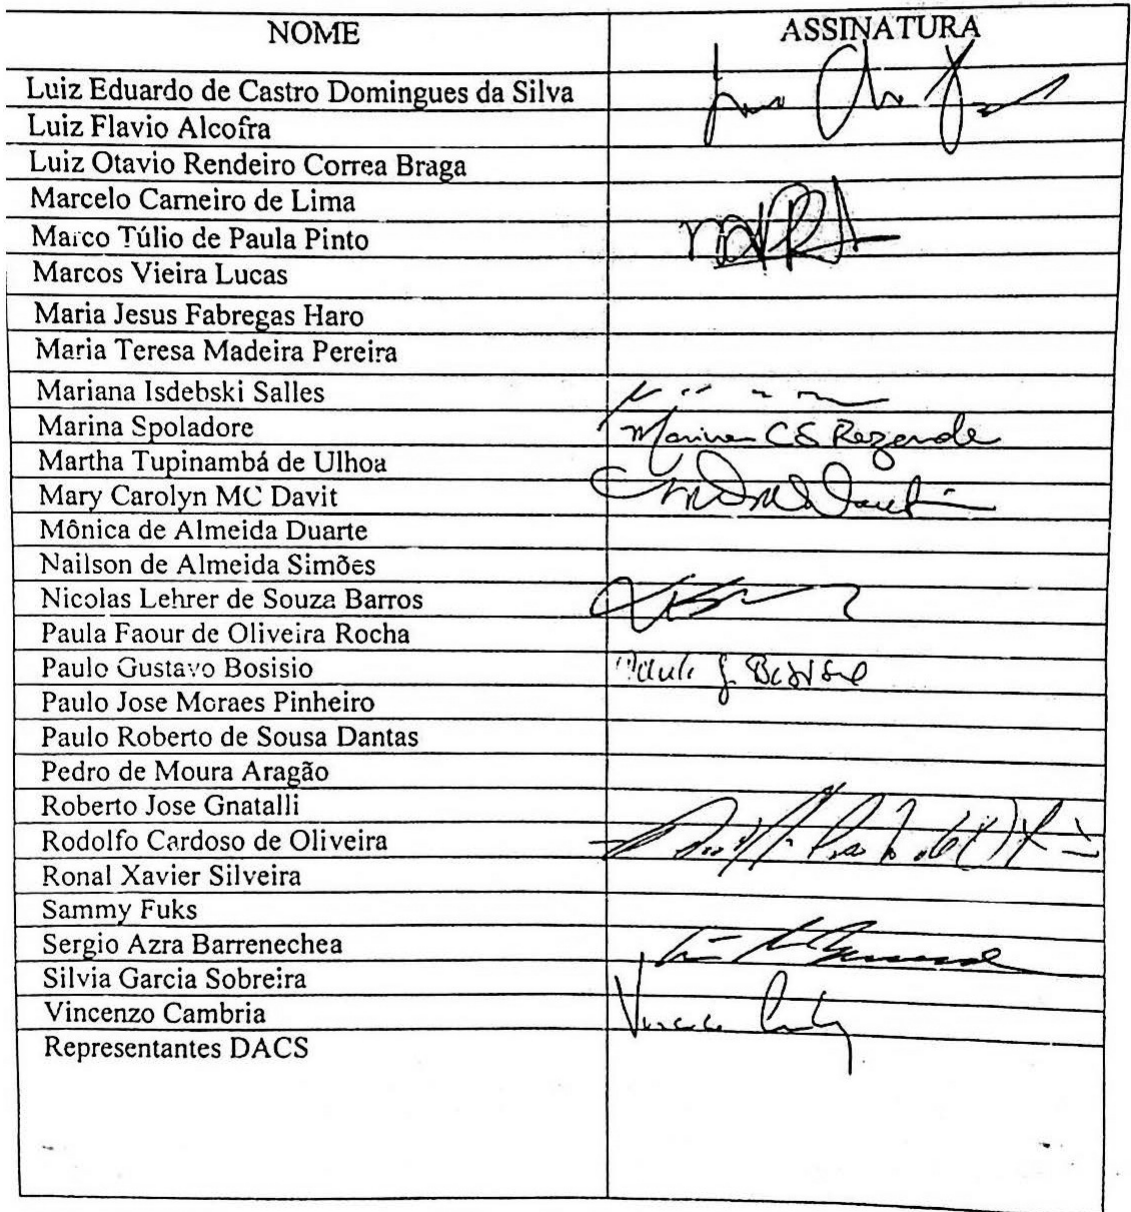 NOME ASSINATURA
Luiz Eduardo de Castro Domingues da Silva
Luiz Flavio Alcofra
Luiz Otavio Rendeiro Correa Braga
Marcelo Carneiro de Lima
Marco Túlio de Paula Pinto
Marcos Vieira Lucas
Maria Jesus Fabregas Haro
Maria Teresa Madeira Pereira
Mariana Isdebski Salles
Marina Spoladore Marina CS Rezende
Martha Tupinambá de Ulhoa
Mary Carolyn MC Davit
Mônica de Almeida Duarte
Nailson de Almeida Simões
Nicolas Lehrer de Souza Barros
Paula Faour de Oliveira Rocha
Paulo Gustavo Bosisio
Paulo Jose Moraes Pinheiro
Paulo Roberto de Sousa Dantas
Pedro de Moura Aragão
Roberto Jose Gnatalli
Rodolfo Cardoso de Oliveira
Ronal Xavier Silveira
Sammy Fuks
Sergio Azra Barrenechea
Silvia Garcia Sobreira
Vincenzo Cambria
Representantes DACS